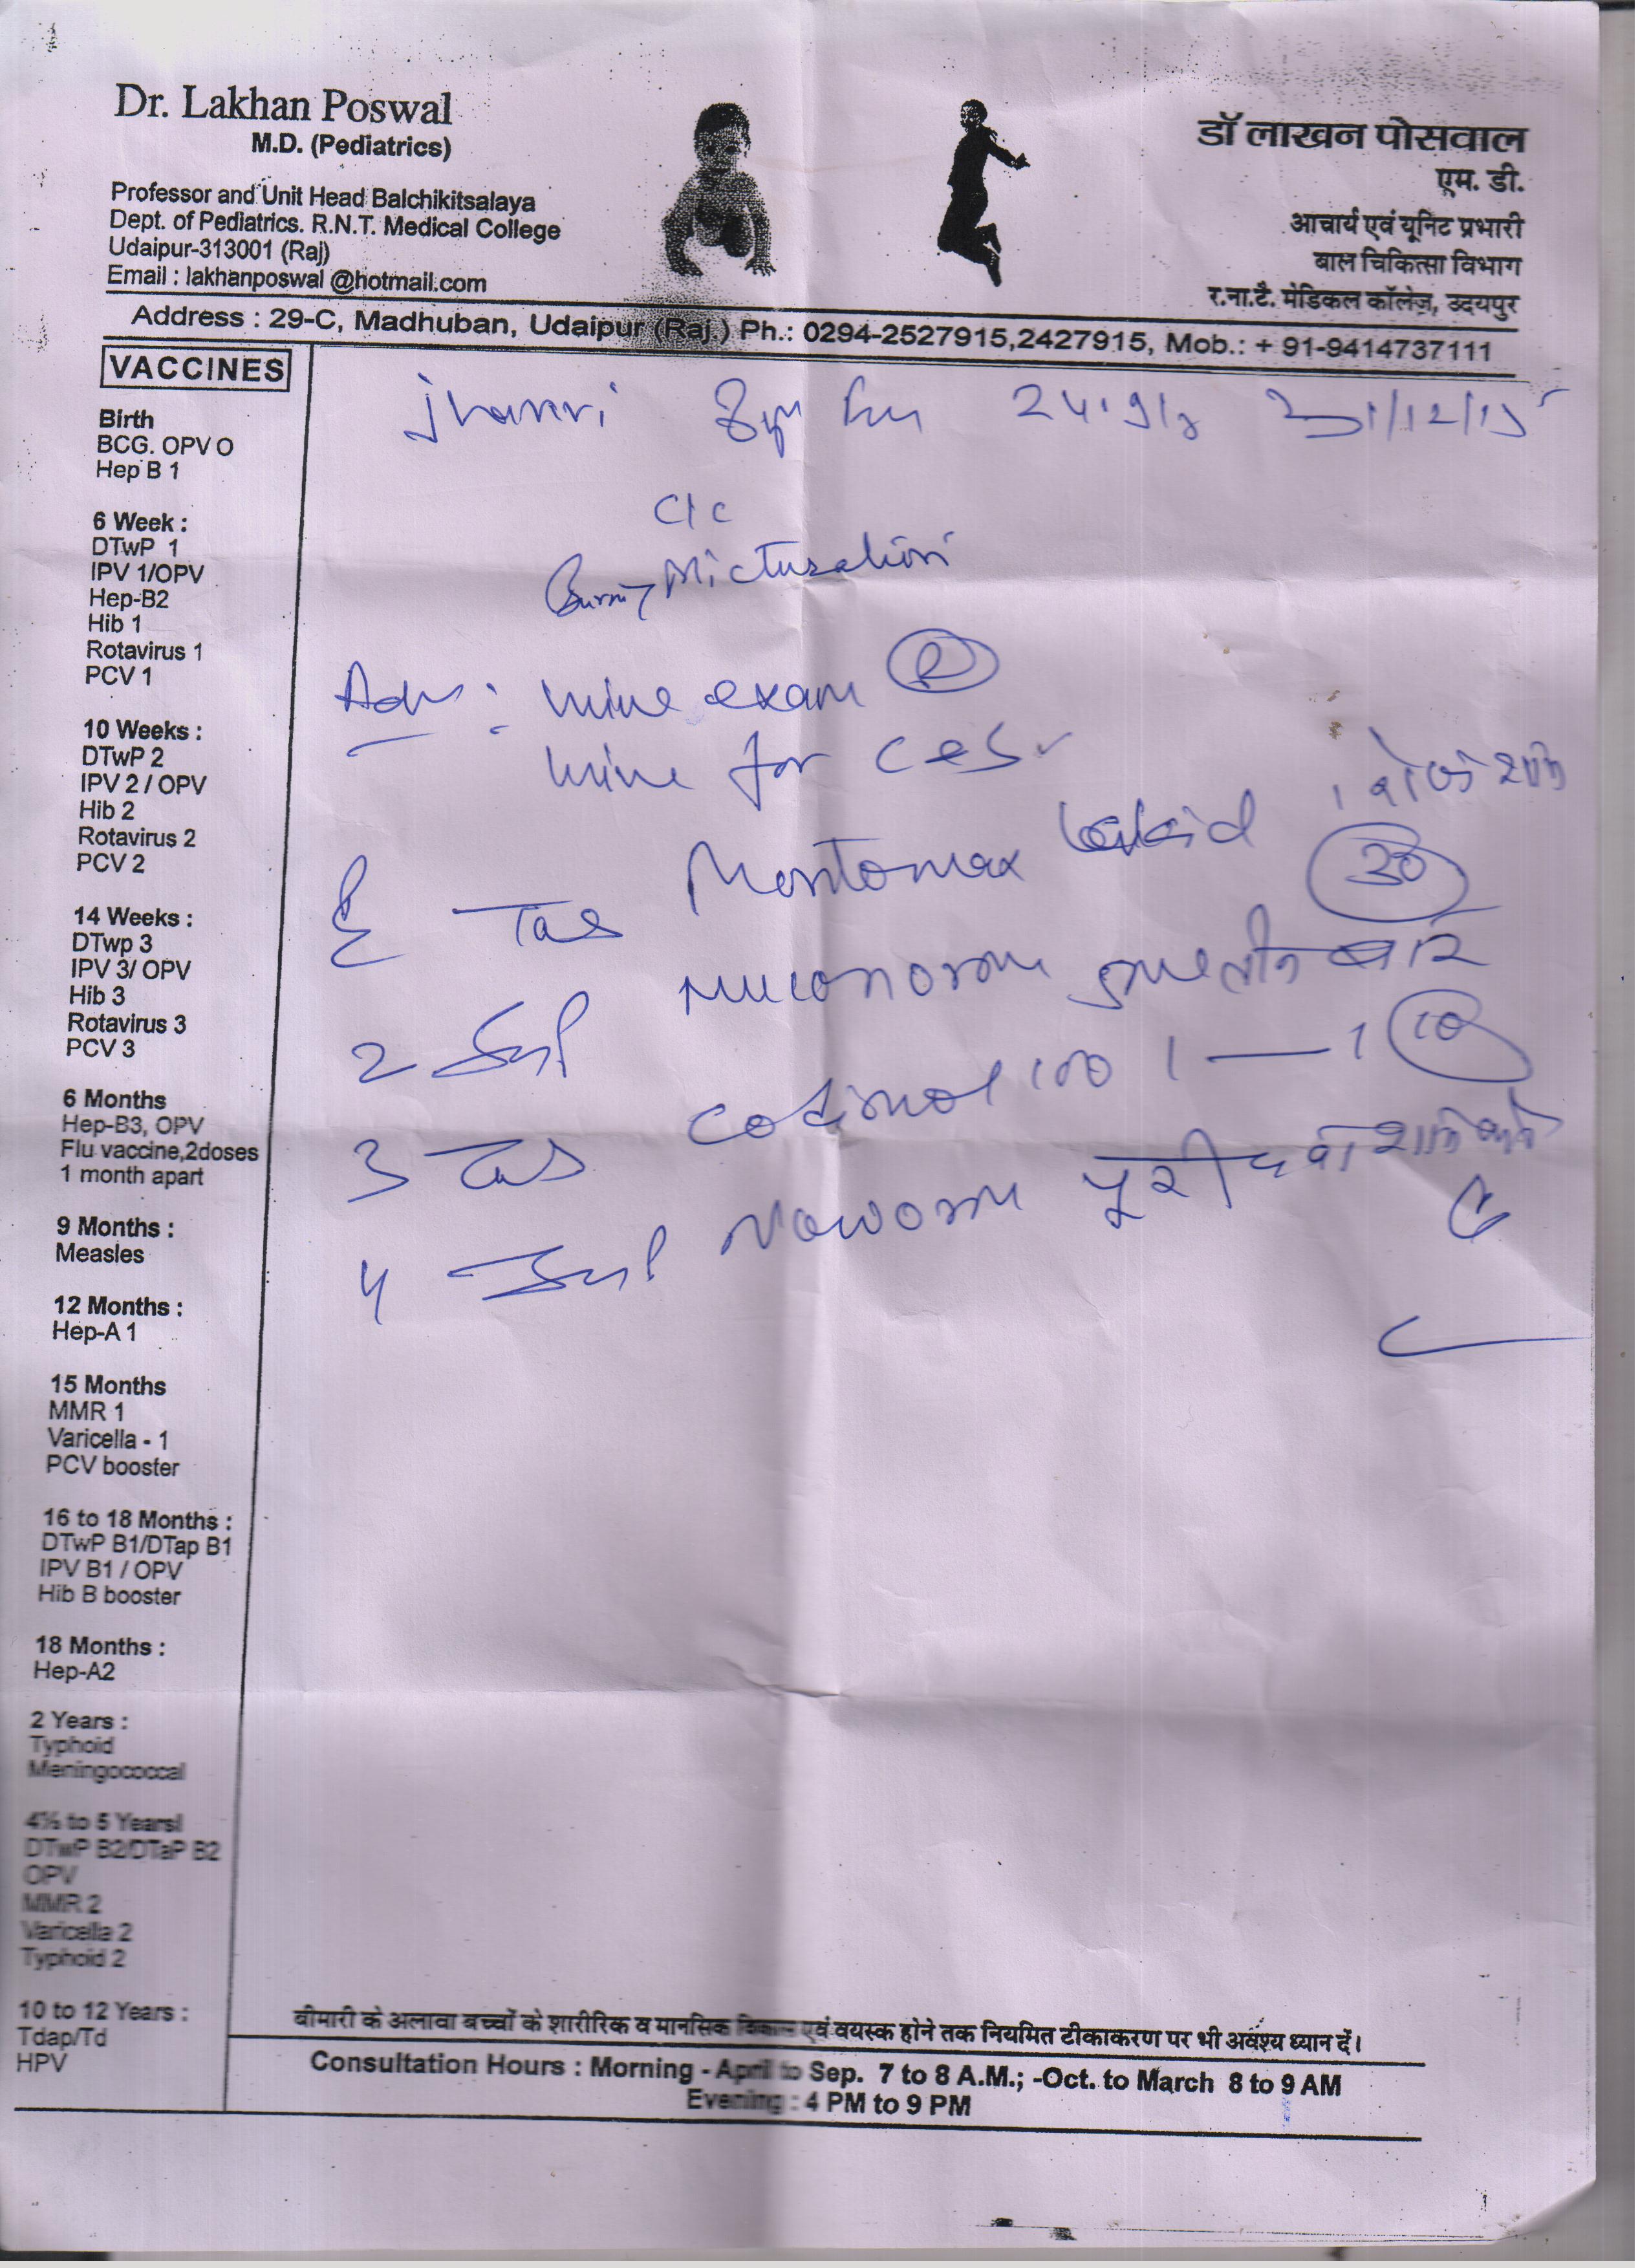 Dr. Lakhan Poswal
M.D. (Pediatrics)
Professor and Unit Head Balchikitsalaya
Dept. of Pediatrics. R.N.T. Medical College
Udaipur-313001 (Raj)
Email : lakhanposwal @hotmail.com
डॉ लाखन पोसवाल
एम. डी.
आचार्य एवं यूनिट प्रभारी
बाल चिकित्सा विभाग
र.ना.टै. मेडिकल कॉलेज, उदयपुर
Address : 29-C, Madhuban, Udaipur (Raj.) Ph.: 0294-2527915,2427915, Mob.: + 91-9414737111
VACCINES
Birth
BCG. OPV O
Hep B 1
6 Week :
DTwP 1
IPV 1/OPV
Hep-B2
Hib 1
Rotavirus 1
PCV 1
10 Weeks :
DTwP 2
IPV 2 / OPV
Hib 2
Rotavirus 2
PCV 2
14 Weeks :
DTwp 3
IPV 3/ OPV
Hib 3
Rotavirus 3
PCV 3
6 Months
Hep-B3, OPV
Flu vaccine,2doses
1 month apart
9 Months :
Measles
12 Months :
Hep-A 1
15 Months
MMR 1
Varicella - 1
PCV booster
16 to 18 Months :
DTwP B1/DTap B1
IPV B1 / OPV
Hib B booster
18 Months :
Hep-A2
2 Years :
Typhoid
Meningococcal
4½ to 5 Yearsl
DTwP B2/DTaP B2
OPV
MMR 2
Varicella 2
Typhoid 2
10 to 12 Years :
Tdap/Td
HPV
31/12/15
C/C
Burning Micturation
Adv : urine exam R
urine for C&S
Tab Montomax 30
2 Syp Muconorm तीन बार
3 Tab 100 1 — 1 10
4 Syp Noworm पूरी दवा
बीमारी के अलावा बच्चों के शारीरिक व मानसिक विकास एवं वयस्क होने तक नियमित टीकाकरण पर भी अवश्य ध्यान दें।
Consultation Hours : Morning - April to Sep. 7 to 8 A.M.; -Oct. to March 8 to 9 AM
Evening : 4 PM to 9 PM